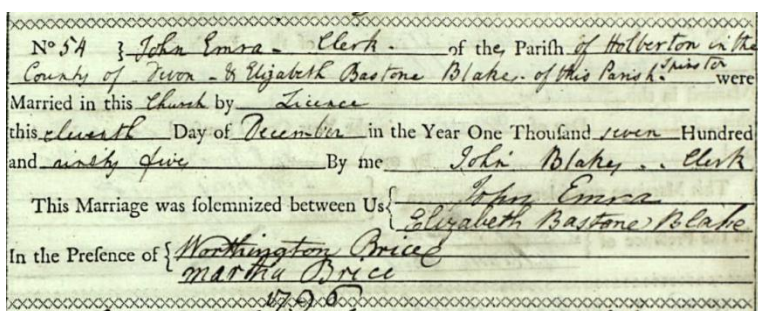 No 54 } John Emra - Clerk - of the Parish of Holberton in the
County of Devon - & Elizabeth Bastone Blake - of this Parish. Spinster were
Married in this Church by Licence
this eleventh Day of December in the Year One Thousand seven Hundred
and ninety five By me John Blake, - Clerk
This Marriage was solemnized between Us { John Emra
Elizabeth Bastone Blake
In the Presence of { Worthington Brice
Martha Brice
1796